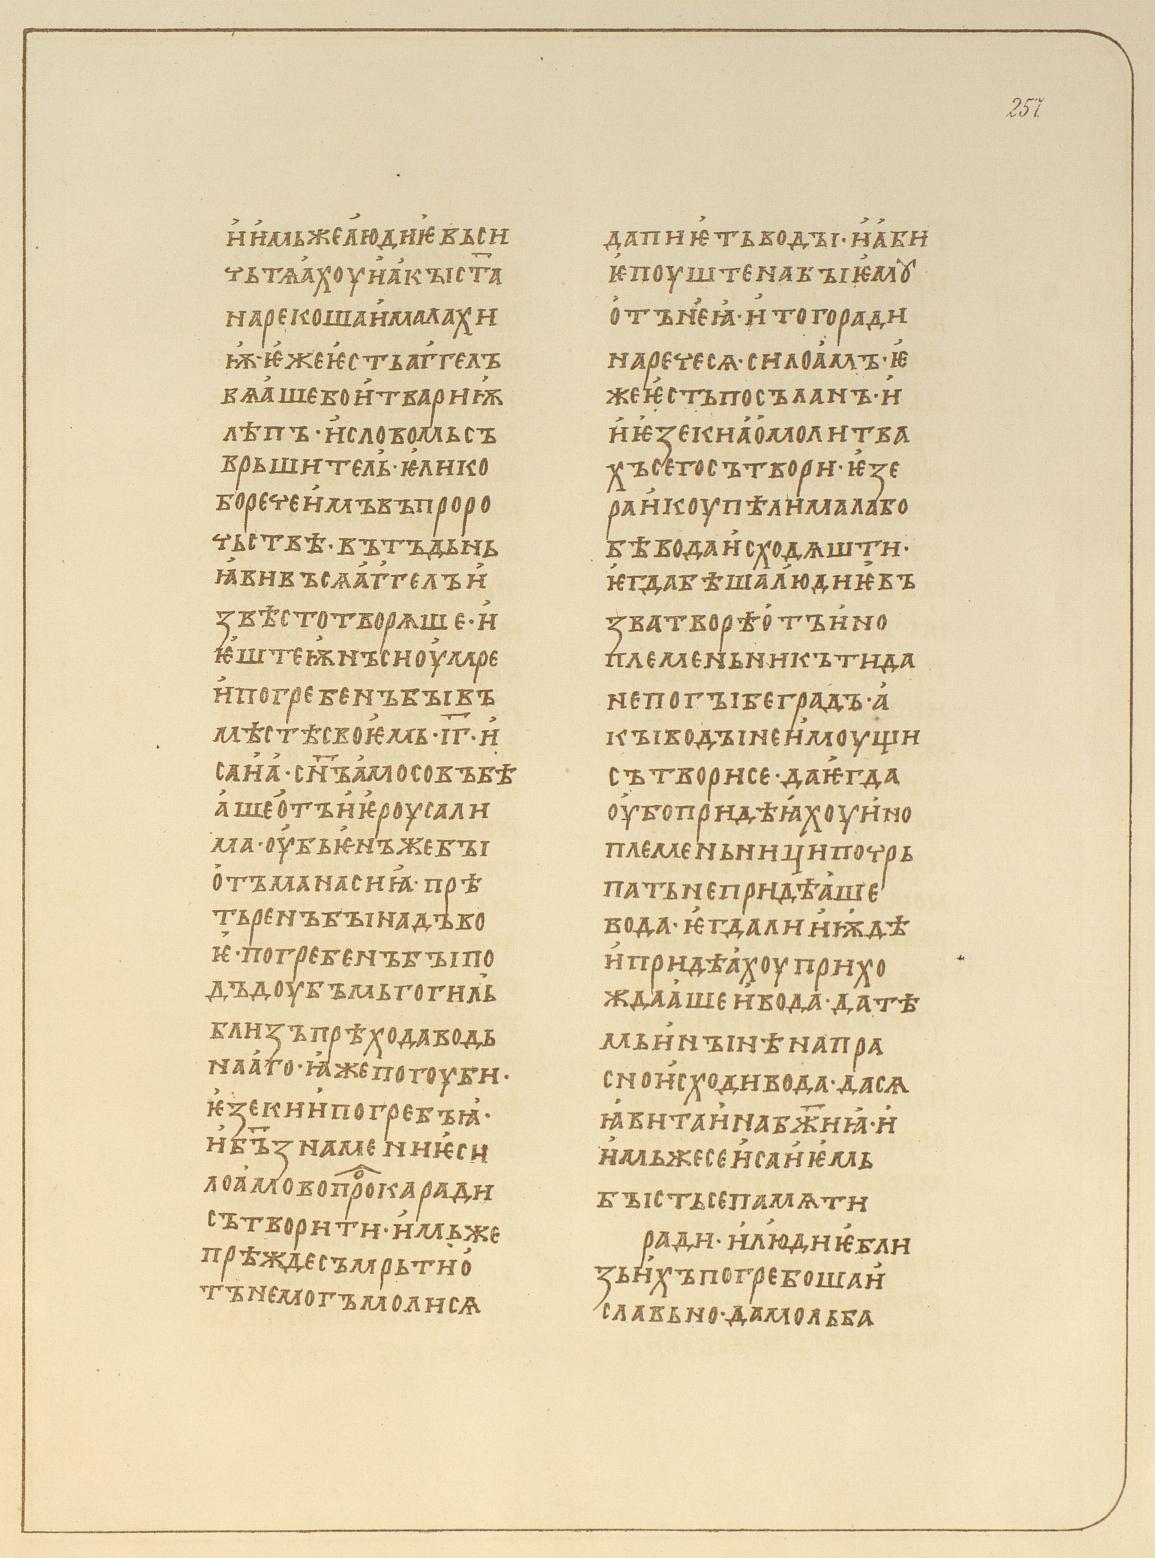 257.
и҆ и҆мьже лю҆диѥ҆ вьси
чьтѧа҆хоу и҆ а҆кы ст҃а
нарекоша и҆ малахи
ѭ҆· ѥ҆же ѥ҆сть аг҆гелъ
вѧа҆ше бо и҆ тварииѭ҆
лѣпъ· и҆ словомьсъ
врьшитель҆· ѥ҆лико
бо рече и҆мъ въ проро
чьствѣ· вътъ дьнь
ꙗ҆ви въсѧ а҆г҆гелъ и҆
звѣсто творѧше· и҆
ѥ҆ште ѭ҆нъ сно у҆мре
и҆ погребенъ бы въ
мѣстѣ своѥ҆мь· і҃г· и҆
саи҆а҆· сн҃ъ а҆мосовъ бѣ
а҆ше о҆тъ и҆ѥ҆роусали
ма· оу҆бьѥ҆нъ же бы
о҆тъ манасиꙗ҆· прѣ
тьренъ бы надъво
ѥ҆· погребенъ бы по
дъ доубъмь гогиль҆
близъ прѣхода водь
наа҆го· ꙗ҆же погоуби·
ѥ҆зекии҆ погребъ ꙗ҆·
и҆ б҃ъ знамениѥ҆ си
лоа҆мово пр҃ока ради
сътворити· и҆мьже
прѣжде съмрьти о҆
тънемогъ молисѧ
да пиѥ҆ть воды· и҆ а҆би
ѥ҆ поуштена бы ѥ҆мꙋ
о҆тъ н҆еꙗ҆· и҆ того ради
наречесѧ· силоа҆мъ· ѥ҆
же ѥ҆сть посъланъ· и҆
и҆ѥ҆зекиа҆ о҆молитва
хъ сего сътвори· ѥ҆зе
раи҆ коупѣли мала бо
бѣ вода и҆сходѧшти·
ѥ҆гда бѣша лю҆диѥ҆ въ
зватворѣ о҆тъ и҆но
племеньникъ ти да
не погыбе градъ· а҆
кы воды не и҆моущи
сътвори се· да ѥ҆гда
оу҆бо придѣꙗ҆хоу и҆но
племеньници почрь
пать не придѣа҆ше
вода· ѥ҆гда ли и҆ѭ҆дѣ
и҆ придѣа҆хоу прихо
ждаа҆ше и҆ вода· да тѣ
мь и҆ нынѣ напра
сно и҆сходи вода· да сѧ
ꙗ҆ви таи҆на бж҃иꙗ҆· и҆
и҆мьже се и҆саи҆ѥ҆мь
бысть се памѧти
ради· и҆ лю҆диѥ҆ бли
зьи҆хъ погребоша и҆
славьно· да мольба